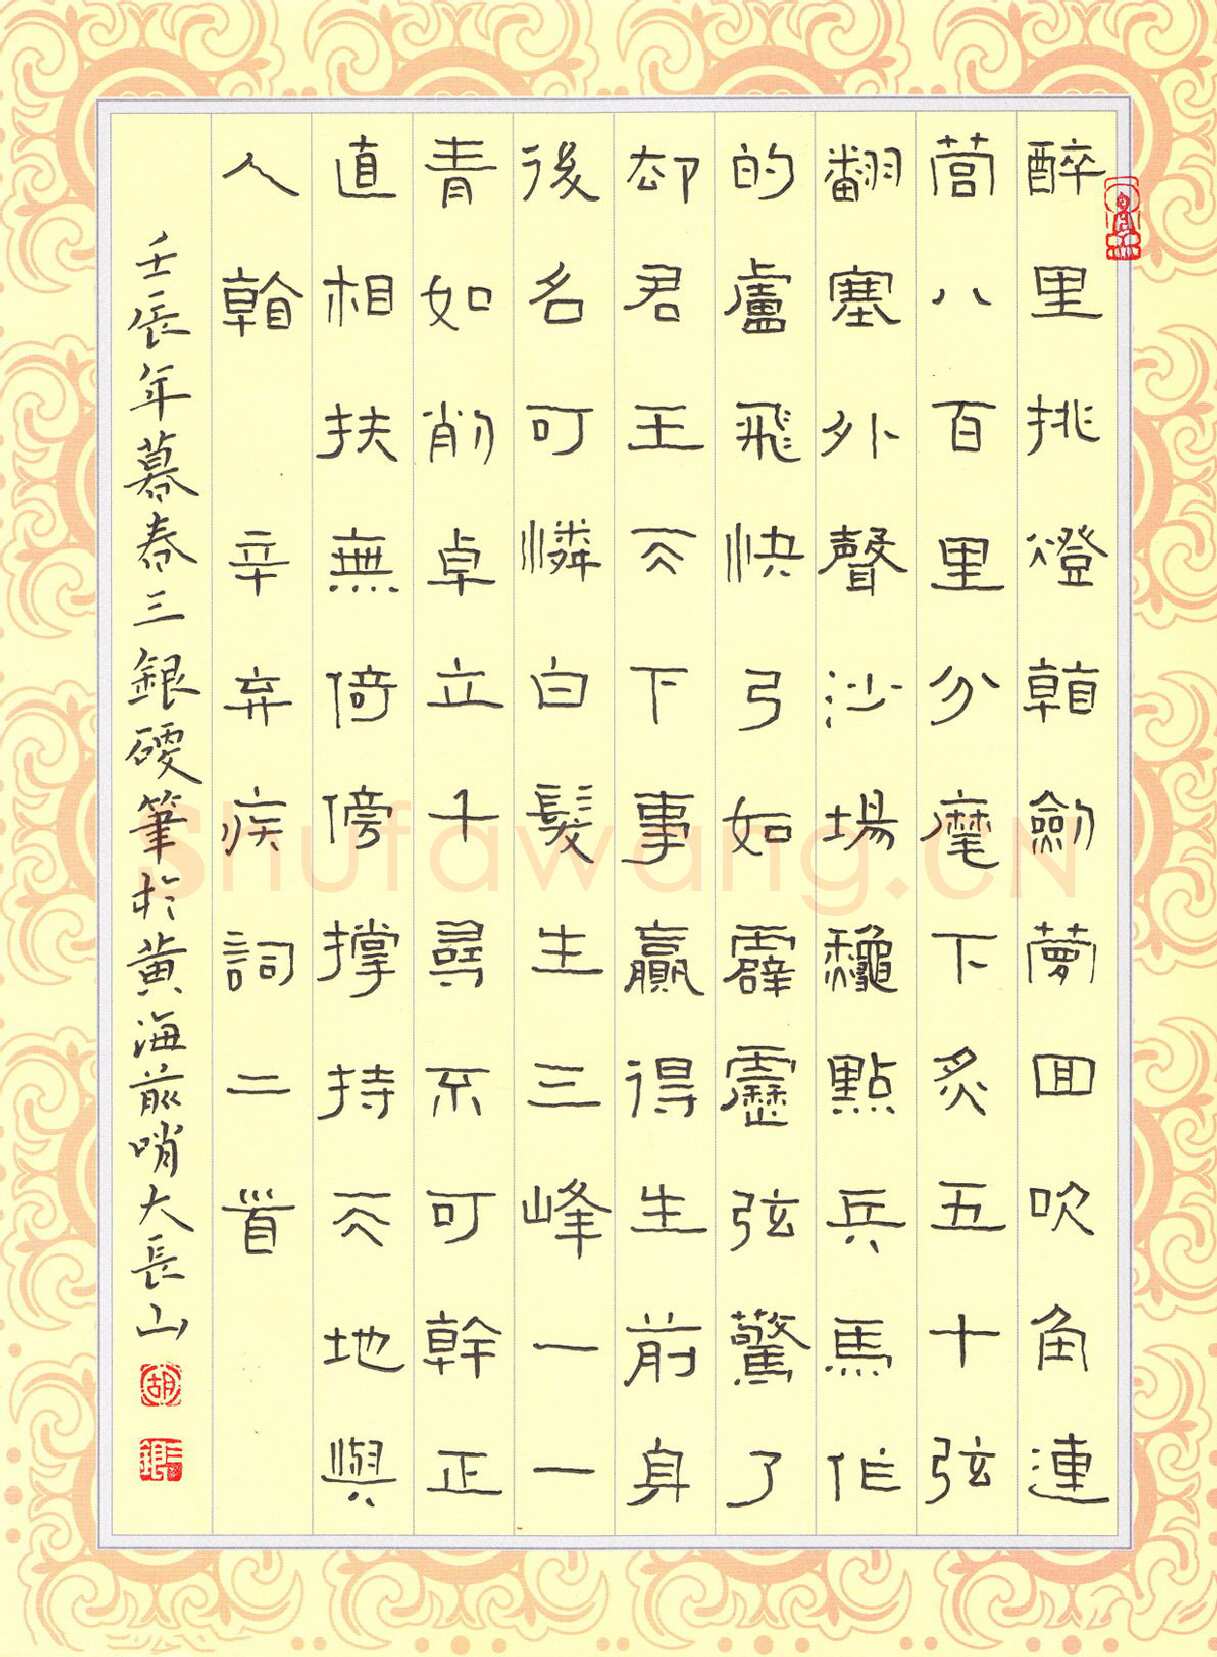 醉里挑燈看劍夢回吹角連
營八百里分麾下炙五十弦
翻塞外聲沙場穐點兵馬作
的盧飛快弓如霹靂弦驚了
却君王天下事贏得生前身
後名可憐白髮生三峰一一
青如削卓立千尋不可幹正
直相扶無倚傍撐持天地與
人看 辛弃疾詞二首
壬辰年暮春三銀硬筆於黄海前哨大長山
胡
三銀
Shufawang.CN